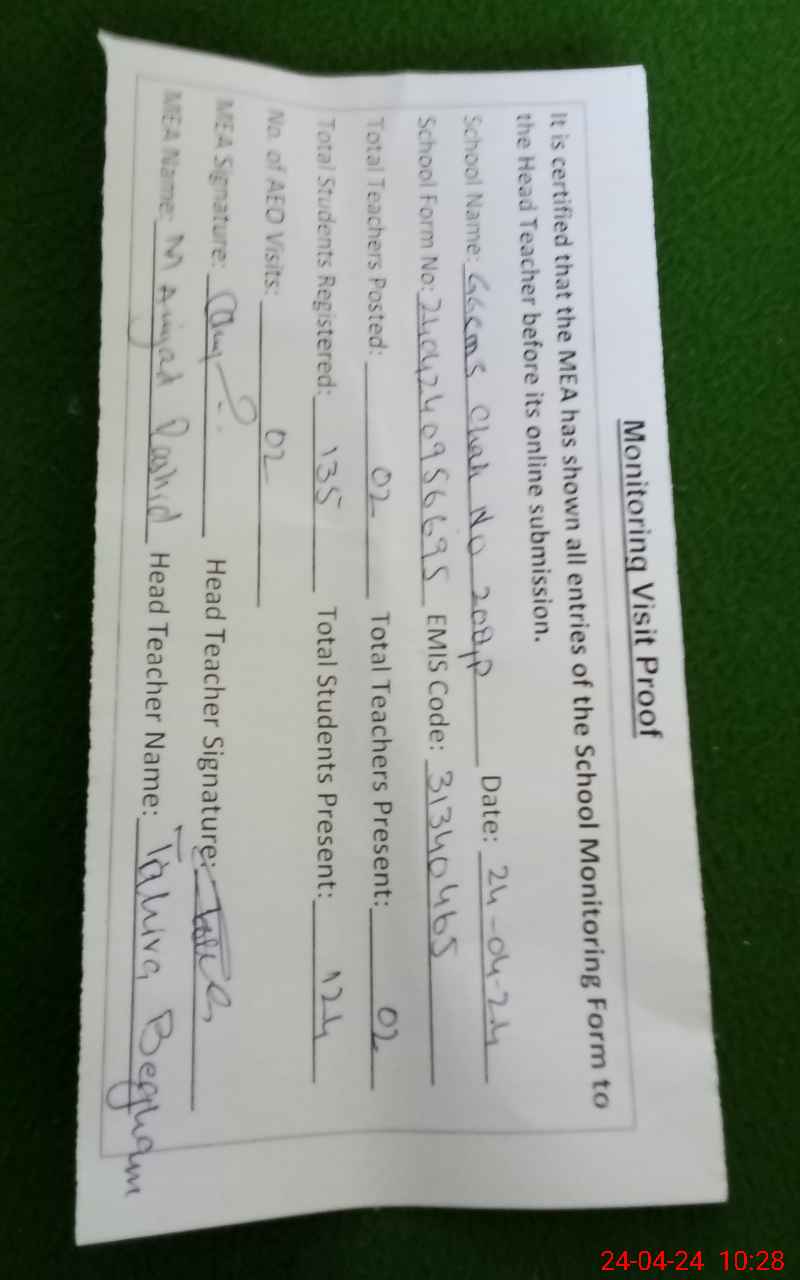 Monitoring Visit Proof
It is certified that the MEA has shown all entries of the School Monitoring Form to
the Head Teacher before its online submission.
School Name: GGCMS Chak No 208,P Date: 24-04-24
School Form No: 2404240956695 EMIS Code: 31340465
Total Teachers Posted: 02 Total Teachers Present: 02
Total Students Registered: 135 Total Students Present: 124
No. of AEO Visits: 02
MEA Signature: Head Teacher Signature:
MEA Name: M Amjad Rashid Head Teacher Name: Tahira Begham
24-04-24 10:28